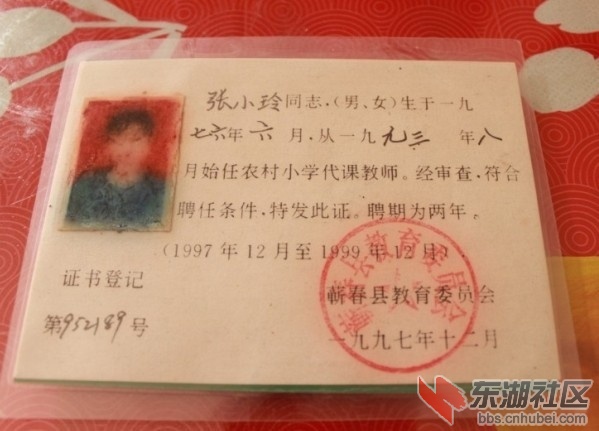 张小玲同志，(男、女)生于一九
七六年六月，从一九九三年八
月始任农村小学代课教师。经审查，符合
聘任条件，特发此证。聘期为两年。
(1997年12月至1999年12月)
证书登记
第952189号
蕲春县教育委员会
蕲春县教育委员会
一九九七年十二月
东湖社区
bbs.cnhubei.com